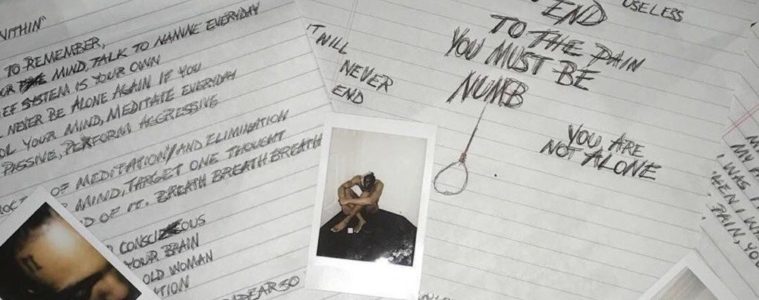 WITHIN"
TO REMEMBER,
MIND, TALK TO NAMINE EVERYDAY
SYSTEM IS YOUR OWN
NEVER BE ALONE AGAIN IF YOU
YOUR MIND, MEDITATE EVERYDAY
PASSIVE, PERFORM AGGRESSIVE
OF MEDITATION/AND ELIMINATION
MIND, TARGET ONE THOUGHT
OF IT. BREATH BREATH BREATH
CONSCIOUS
YOUR BRAIN
OLD WOMAN
IT WILL
NEVER
END
USELESS
END
TO THE PAIN
YOU MUST BE
NUMB
YOU ARE
NOT ALONE
MY
I WAS
WHEN I WA
PAIN, YO